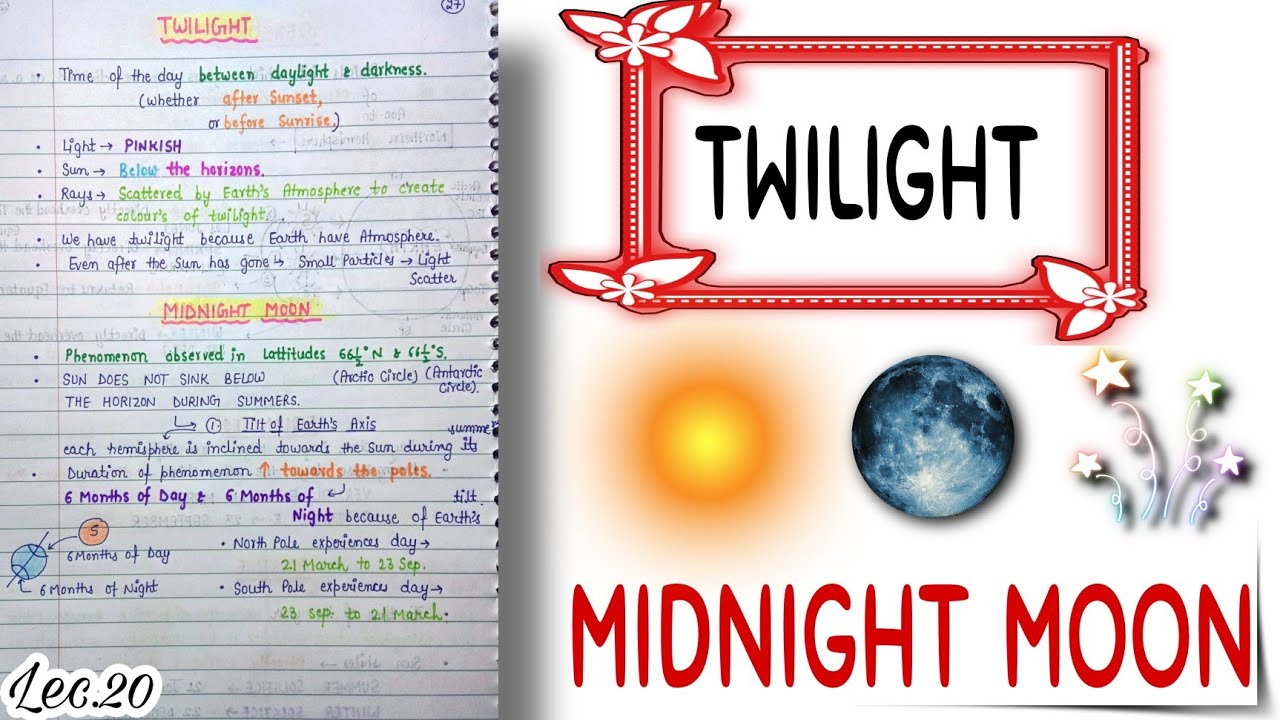 27
TWILIGHT
• Time of the day between daylight & darkness.
(whether after Sunset,
or before Sunrise.)
• Light → PINKISH
• Sun → Below the horizons.
• Rays → Scattered by Earth's Atmosphere to create
colour's of twilight.
• We have twilight because Earth have Atmosphere.
• Even after the Sun has gone ↳ Small Particles → Light
Scatter
MIDNIGHT MOON
• Phenomenon observed in Lattitudes 66½° N & 66½° S.
• SUN DOES NOT SINK BELOW (Arctic Circle) (Antarctic
THE HORIZON DURING SUMMERS. Circle).
↳ ① Tilt of Earth's Axis summer
each hemisphere is inclined towards the Sun during its
• Duration of phenomenon ↑ towards the poles.
6 Months of Day & 6 Months of tilt
Night because of Earth's
S
6 Months of Day
• North Pole experiences day →
21 March to 23 Sep.
6 Months of Night
• South Pole experiences day →
23 Sep. to 21 March.
Lec.20
TWILIGHT
MIDNIGHT MOON